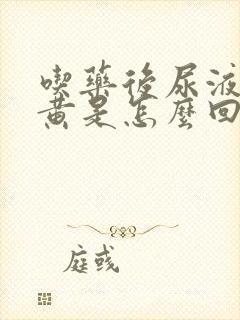 喫藥後尿液
黃是怎麼回
庭彧